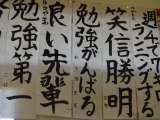 ランニングする
笑信勝明
勉強がんばる
良い先輩
勉強第一